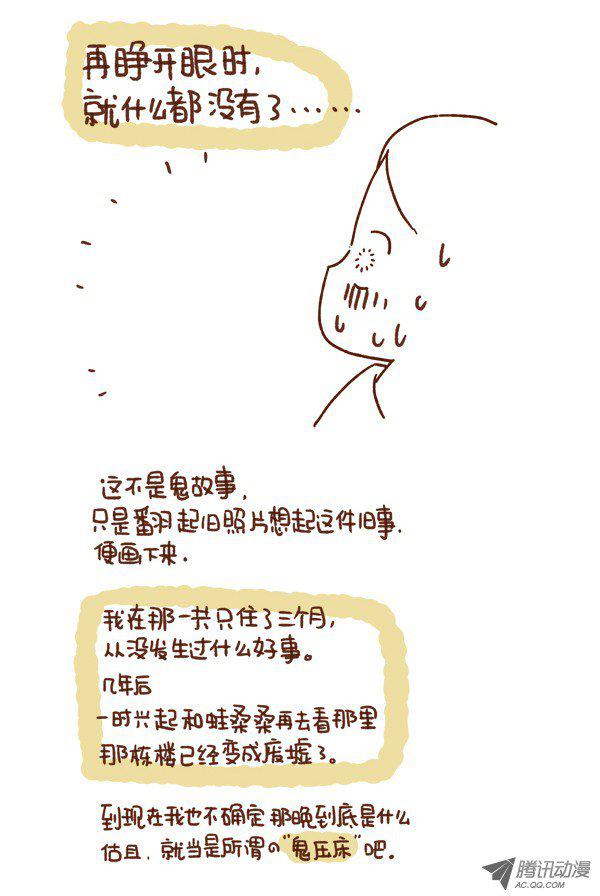 再睁开眼时,
就什么都没有了……
这不是鬼故事,
只是翻起旧照片想起这件旧事.
便画下来.
我在那一共只住了三个月,
从没发生过什么好事。
几年后
一时兴起和蛙桑桑再去看那里
那栋楼已经变成废墟了。
到现在我也不确定那晚到底是什么
估且,就当是所谓の"鬼压床"吧。
腾讯动漫
AC.QQ.COM